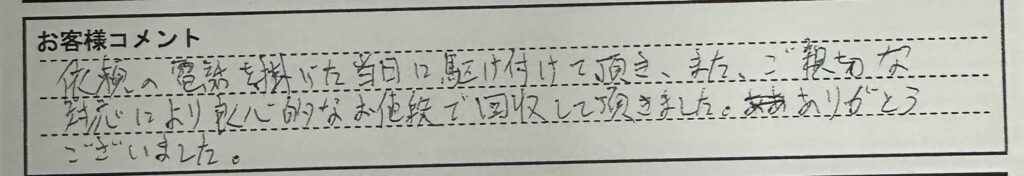 お客様コメント
依頼の電話を掛けた当日に駆け付けて頂き、また、ご親切な
対応により良心的なお値段で回収して頂きました。ありがとう
ございました。